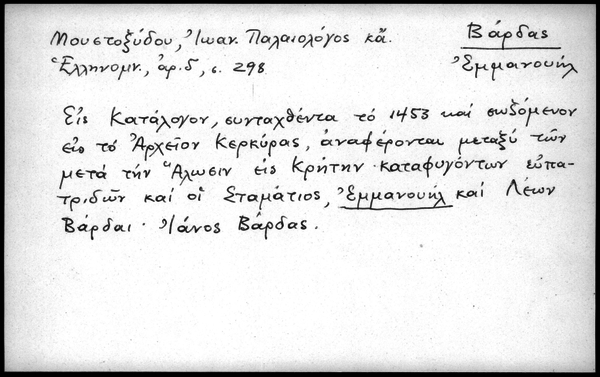 Μουστοξύδου, Ἰωαν. Παλαιολόγος κἄ.
Βάρδας
Ἑλληνομν., ἀρ. δ΄, σ. 298
Ἐμμανουήλ
Εἰς Κατάλογον, συνταχθέντα τό 1453 καί σωζόμενον
εἰς τό Ἀρχεῖον Κερκύρας, ἀναφέρονται μεταξύ τῶν
μετά τήν Ἅλωσιν εἰς Κρήτην καταφυγόντων εὐπα-
τριδῶν καί οἱ Σταμάτιος, Ἐμμανουήλ καί Λέων
Βάρδαι · Ἰάνος Βάρδας.